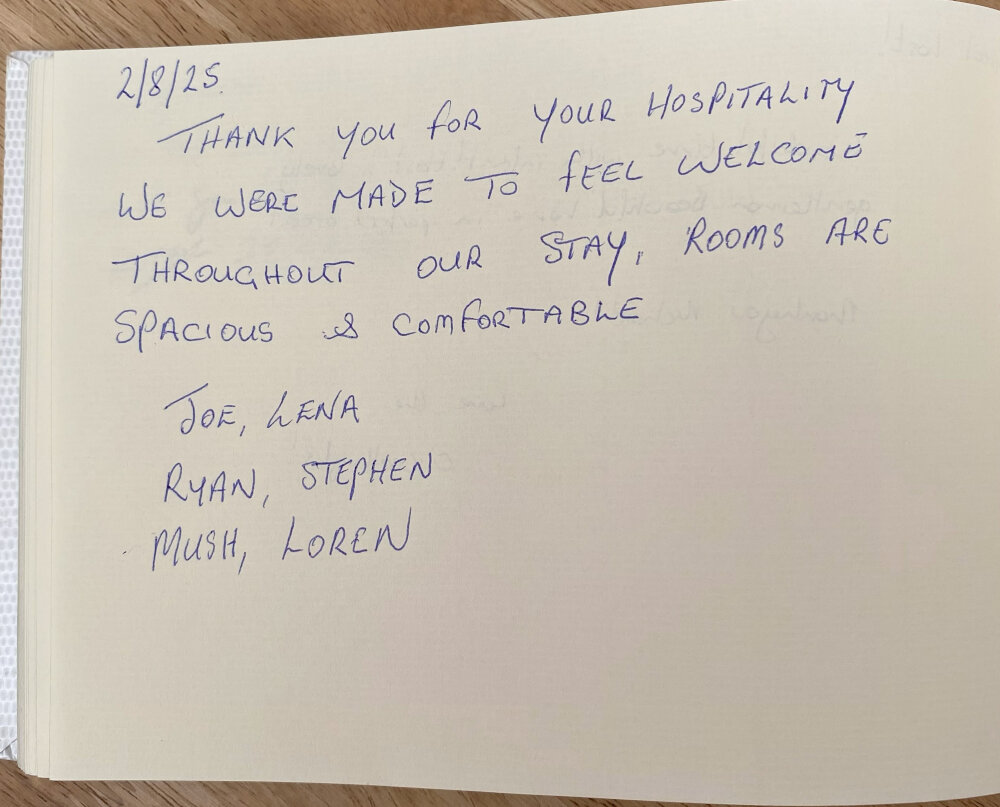 2/8/25.
THANK YOU FOR YOUR HOSPITALITY
WE WERE MADE TO FEEL WELCOME
THROUGHOUT OUR STAY, ROOMS ARE
SPACIOUS & COMFORTABLE
JOE, LENA
RYAN, STEPHEN
MUSH, LOREN